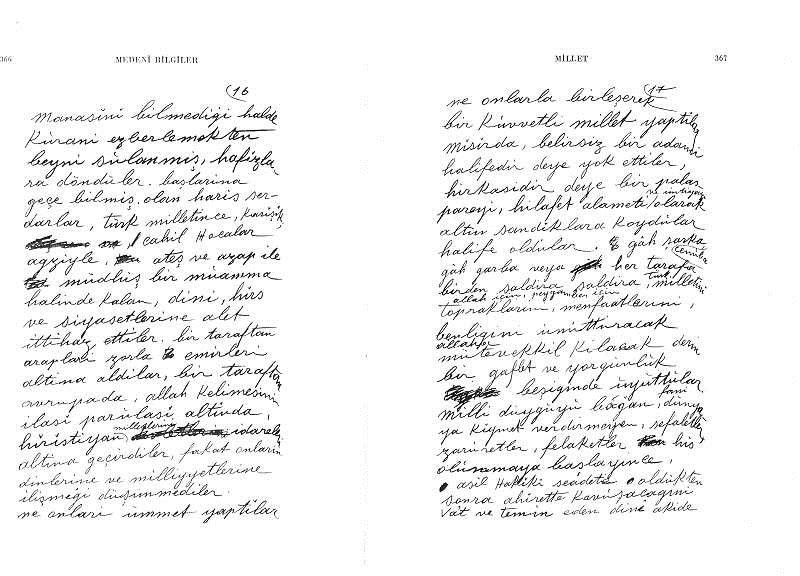 366
MEDENÎ BİLGİLER
(16
manasini bilmediği halde
Kurani ezberlemekten
beyni sulanmış, hafizla-
ra döndüler. başlarina
geçe bilmiş olan haris ser-
darlar, türk milletince, karişik
cahil Hocalar
agziyle, ateş ve azap ile
müdhiş bir muamma
halinde kalan, dini, hirs
ve siyasetlerine alet
ittihaz ettiler. bir taraftan
araplari zorla emirleri
altina aldilar, bir taraftan
avrupada, allah kelimesinin
ilasi parulasi altında,
hiristiyan milletlerini idareleri
altina geçirdiler, fakat onlarin
dinlerine ve milliyyetlerine
ilişmeği düşünmediler.
ne onlari ümmet yaptilar
MİLLET
367
17
ne onlarla birleşerek
bir kuvvetli millet yaptilar
misirda, belirsiz bir adami
halifedir deye yok ettiler,
hirkasidir deye bir palas
pareyi, hilafet alameti ve imtiyazi olarak
altın sandiklara koydular
halife oldular. gâh şarka
gâh garba veya her tarafa
birden saldira saldira, türk milletini
allah için, peygamber için
topraklarini, menfaatlarini,
benligini unutturacak
allahla
mütevekkil kilacak derin
bir gaflet ve yorgunluk
beşiginde uyuttular
milli duyguyu boğan, fani dünya-
ya kiymet verdirmeyen, sefaletler
zaruretler, felaketler his
olunmaya başlayınca,
asil Hakiki seadete öldükten
sonra ahirette kavuşacağını
vât ve temin eden dinî akide